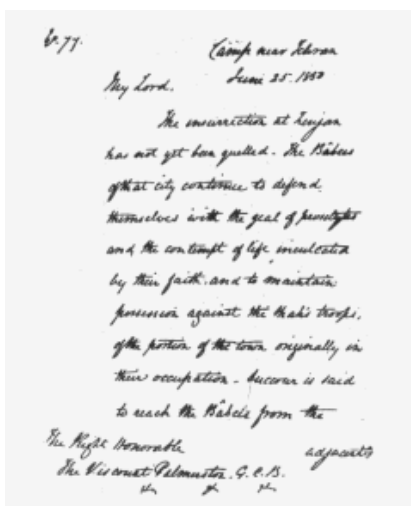 No. 77.
Camp near Tehran
June 25. 1850
My Lord.
The insurrection at Zenjan
has not yet been quelled - The Bâbees
of that city continue to defend
themselves with the zeal of proselytes
and the contempt of life inculcated
by their faith, and to maintain
possession against the Shah's troops,
of the portion of the town originally in
their occupation - Succour is said
to reach the Bâbees from the
adjacents
The Right Honorable
The Viscount Palmerston. G.C.B.